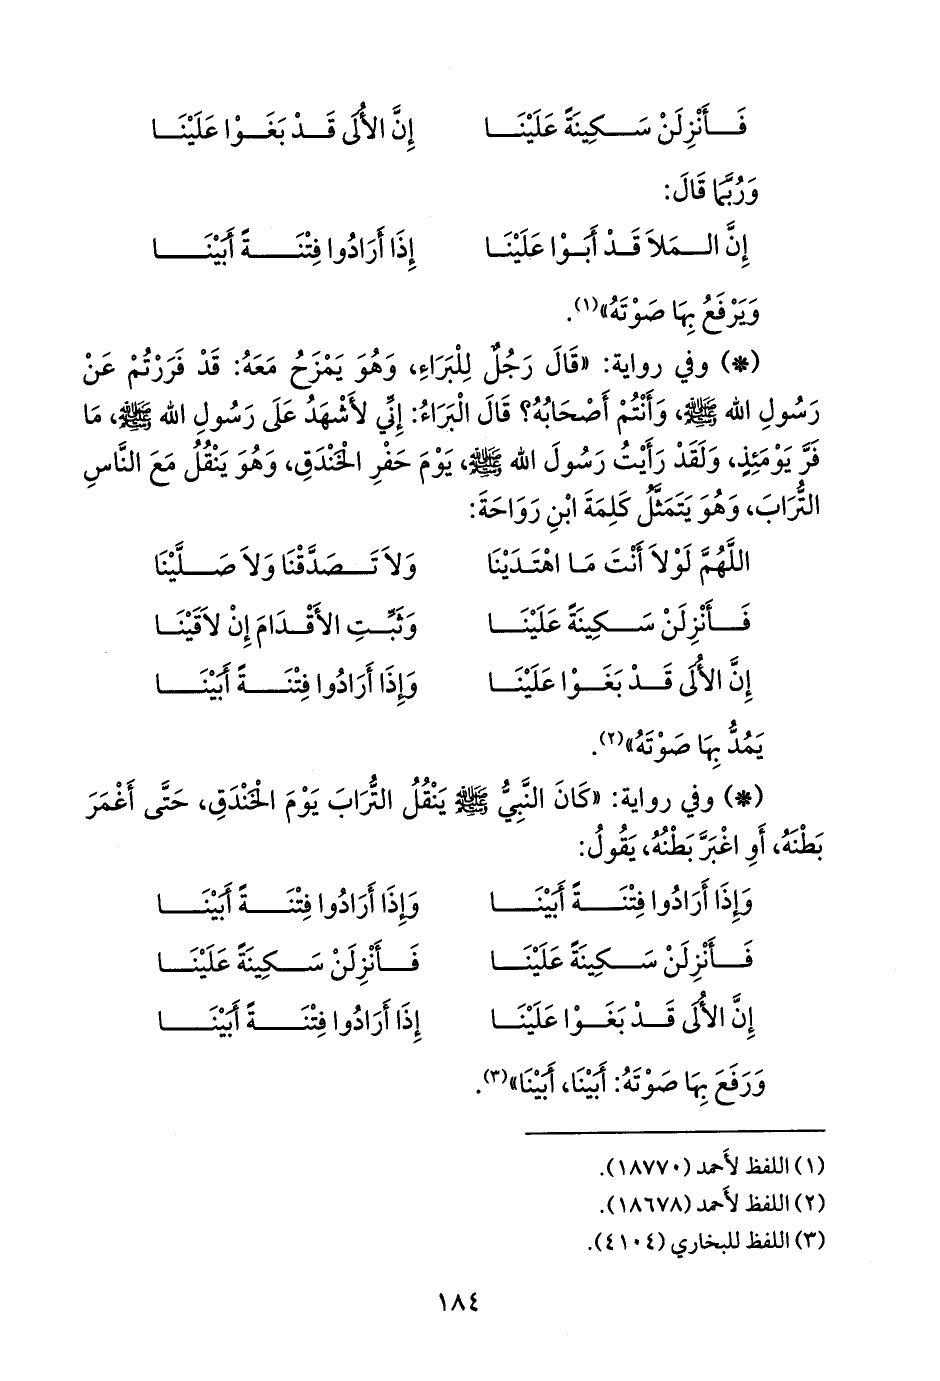 فَأَنْزِلَنْ سَكِينَةً عَلَيْنَا إِنَّ الأُلَى قَدْ بَغَوْا عَلَيْنَا
وَرُبَّمَا قَالَ:
إِنَّ الـمَلاَ قَدْ أَبَوْا عَلَيْنَا إِذَا أَرَادُوا فِتْنَةً أَبَيْنَا
وَيَرْفَعُ بِهَا صَوْتَهُ»(١).
(*) وفي رواية: «قَالَ رَجُلٌ لِلْبَرَاءِ، وَهُوَ يَمْزَحُ مَعَهُ: قَدْ فَرَرْتُمْ عَنْ
رَسُولِ الله ﷺ، وَأَنْتُمْ أَصْحَابُهُ؟ قَالَ الْبَرَاءُ: إِنِّي لأَشْهَدُ عَلَى رَسُولِ الله ﷺ، مَا
فَرَّ يَوْمَئِذٍ، وَلَقَدْ رَأَيْتُ رَسُولَ الله ﷺ، يَوْمَ حَفْرِ الخَنْدَقِ، وَهُوَ يَنْقُلُ مَعَ النَّاسِ
التُّرَابَ، وَهُوَ يَتَمَثَّلُ كَلِمَةَ ابْنِ رَوَاحَةَ:
اللَّهُمَّ لَوْلاَ أَنْتَ مَا اهْتَدَيْنَا وَلاَ تَصَدَّقْنَا وَلاَ صَلَّيْنَا
فَأَنْزِلَنْ سَكِينَةً عَلَيْنَا وَثَبِّتِ الأَقْدَامَ إِنْ لاَقَيْنَا
إِنَّ الأُلَى قَدْ بَغَوْا عَلَيْنَا وَإِذَا أَرَادُوا فِتْنَةً أَبَيْنَا
يَمُدُّ بِهَا صَوْتَهُ»(٢).
(*) وفي رواية: «كَانَ النَّبِيُّ ﷺ يَنْقُلُ التُّرَابَ يَوْمَ الخَنْدَقِ، حَتَّى أَغْمَرَ
بَطْنَهُ، أَوِ اغْبَرَّ بَطْنُهُ، يَقُولُ:
وَإِذَا أَرَادُوا فِتْنَةً أَبَيْنَا وَإِذَا أَرَادُوا فِتْنَةً أَبَيْنَا
فَأَنْزِلَنْ سَكِينَةً عَلَيْنَا فَأَنْزِلَنْ سَكِينَةً عَلَيْنَا
إِنَّ الأُلَى قَدْ بَغَوْا عَلَيْنَا إِذَا أَرَادُوا فِتْنَةً أَبَيْنَا
وَرَفَعَ بِهَا صَوْتَهُ: أَبَيْنَا، أَبَيْنَا»(٣).
(١) اللفظ لأَحمد (١٨٧٧٠).
(٢) اللفظ لأَحمد (١٨٦٧٨).
(٣) اللفظ للبخاري (٤١٠٤).
١٨٤